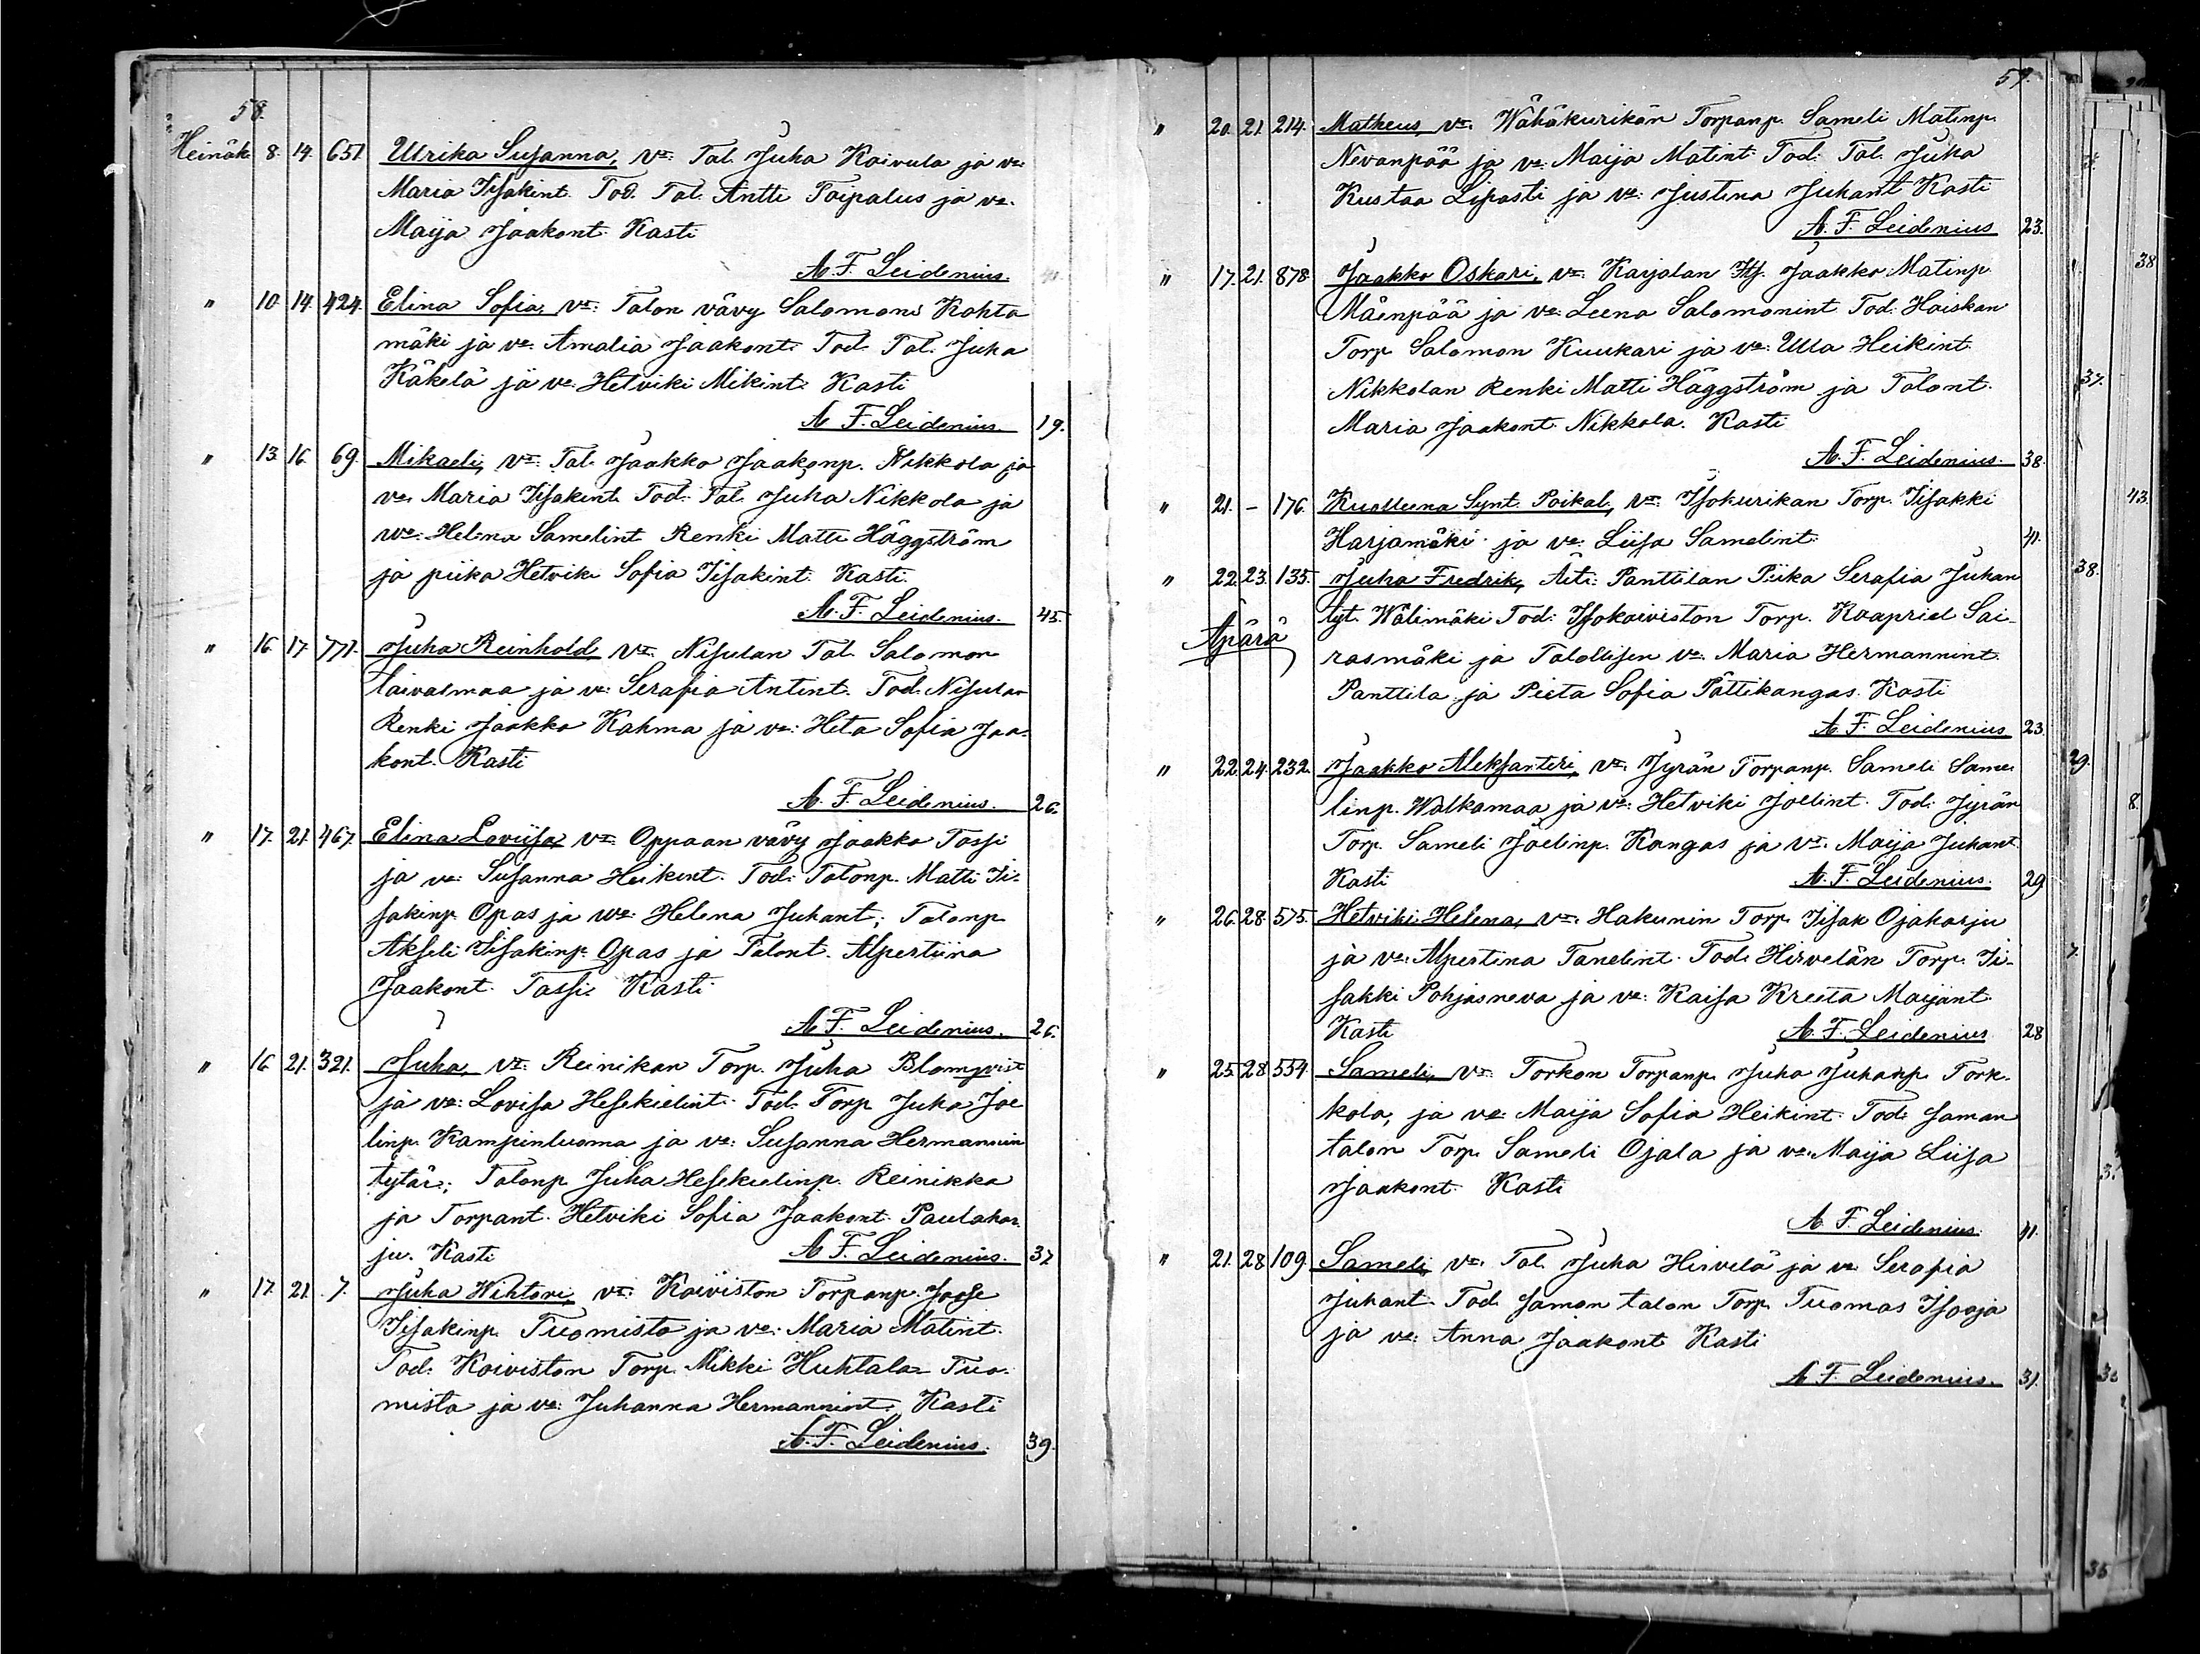 58.
Heinäk 8. 14. 651. Ulrika Susanna, va: Tal. Juha Koivula ja va:
Maria Iisakint. Tod. Tal. Antti Taipalus ja va.
Maija Jaakont. Kasti
A. F. Leidenius.
" 10. 14. 424. Elina Sofia, va: Talon vävy Salomon Kohta
mäki ja va. Amalia Jaakont. Tod. Tal. Juha
Käkelä ja va. Hetviki Mikint. Kasti
A. F. Leidenius. 19.
" 13. 16. 69. Mikaeli, va: Tal. Jaakko Jaakonp. Nikkola ja
va. Maria Iisakint. Tod. Tal. Juha Nikkola ja
va: Helena Samelint. Renki Matti Häggström
ja piika Hetvik Sofia Iisakint. Kasti.
A. F. Leidenius. 45.
" 16. 17. 771. Juha Reinhold va. Nisulan Tal. Salomon
Taivalmaa ja va: Serafia Antint. Tod. Nisulan
Renki Jaakko Kahma ja va: Heta Sofia Jaa-
kont. Kasti
A. F. Leidenius. 26.
" 17. 21. 467. Elina Loviisa, va: Oppaan vävy Jaakko Tassi
ja va: Susanna Heikint. Tod: Talonp. Matti Ii-
sakinp. Opas ja va: Helena Juhant; Talonp.
Akseli Iisakinp. Opas ja Talont. Alpertiina
Jaakont. Tassi. Kasti.
A. F. Leidenius. 26.
" 16. 21. 321. Juha, va: Reinikan Torp. Juha Blomqvist
ja va: Lovisa Hesekielint. Tod. Torp. Juha Joe
linp. Kampinluoma ja va: Susanna Hermannin
tytär; Talonp. Juha Hesekielinp. Reinikka
ja Torpant. Hetviki Sofia Jaakont. Paulahar-
ju. Kasti A. F. Leidenius. 37
" 17. 21. 7. Juha Wihtori, va: Koiviston Torpanp. Joose
Iisakinp. Tuomisto ja va: Maria Matint.
Tod: Koiviston Torp. Mikki Huhtala= Tuo-
misto ja va: Juhanna Hermannint. Kasti
A. F. Leidenius. 39.
59.
" 20. 21. 214. Matheus, va. Wähäkurikan Torpanp. Sameli Matinp.
Nevanpää ja va: Maija Matint. Tod: Tal. Juha
Kustaa Lipasti ja va: Justina Juhant Kasti
A. F. Leidenius 23.
" 17. 21. 878. Jaakko Oskari, va: Karjalan Its. Jaakko Matinp.
Mäenpää ja va: Leena Salomonint Tod: Haiskan
Torp Salomon Kuukari ja va: Ulla Heikint.
Nikkolan Renki Matti Häggström ja Talont.
Maria Jaakont. Nikkola. Kasti
A. F. Leidenius. 38.
" 21. - 176. Kuolleena Synt. Poikal., va: Isokurikan Torp. Iisakki
Harjamäki ja va: Liisa Samelint. 41.
" 22. 23. 135. Juha Fredrik, Äiti: Panttilan Piika Serafia Juhan
tyt. Wälimäki Tod: Isokoiviston Torp. Kaapriel Sai-
Äpärä rasmäki ja Talollisen va: Maria Hermannint.
Panttila ja Pieta Sofia Pättikangas. Kasti
A. F. Leidenius 23.
" 22. 24. 232. Jaakko Aleksanteri, va. Jyrän Torpanp. Sameli Same-
linp. Walkamaa ja va: Hetviki Joelint. Tod: Jyrän
Torp. Sameli Joelinp. Kangas ja va. Maija Juhant.
Kasti A. F. Leidenius. 29
" 26. 28. 575. Hetviki Helena, va: Hakunin Torp. Iisak Ojaharju
ja va: Alpertina Tanelint. Tod: Hirvelän Torp. Ii-
sakki Pohjasneva ja va: Kaisa Kreeta Maijant.
Kasti A. F. Leidenius 28
" 25. 28. 554. Sameli, va: Torkon Torpanp. Juha Juhanp. Tork-
kola, ja va: Maija Sofia Heikint. Tod: saman
talon Torp. Sameli Ojala ja va. Maija Liisa
Jaakont. Kasti
A. F. Leidenius. 41.
" 21. 28. 109. Sameli, va. Tal. Juha Hirvelä ja va. Serafia
Juhant. Tod. saman talon Torp. Tuomas Isooja
ja va: Anna Jaakont Kasti
A. F. Leidenius. 31.